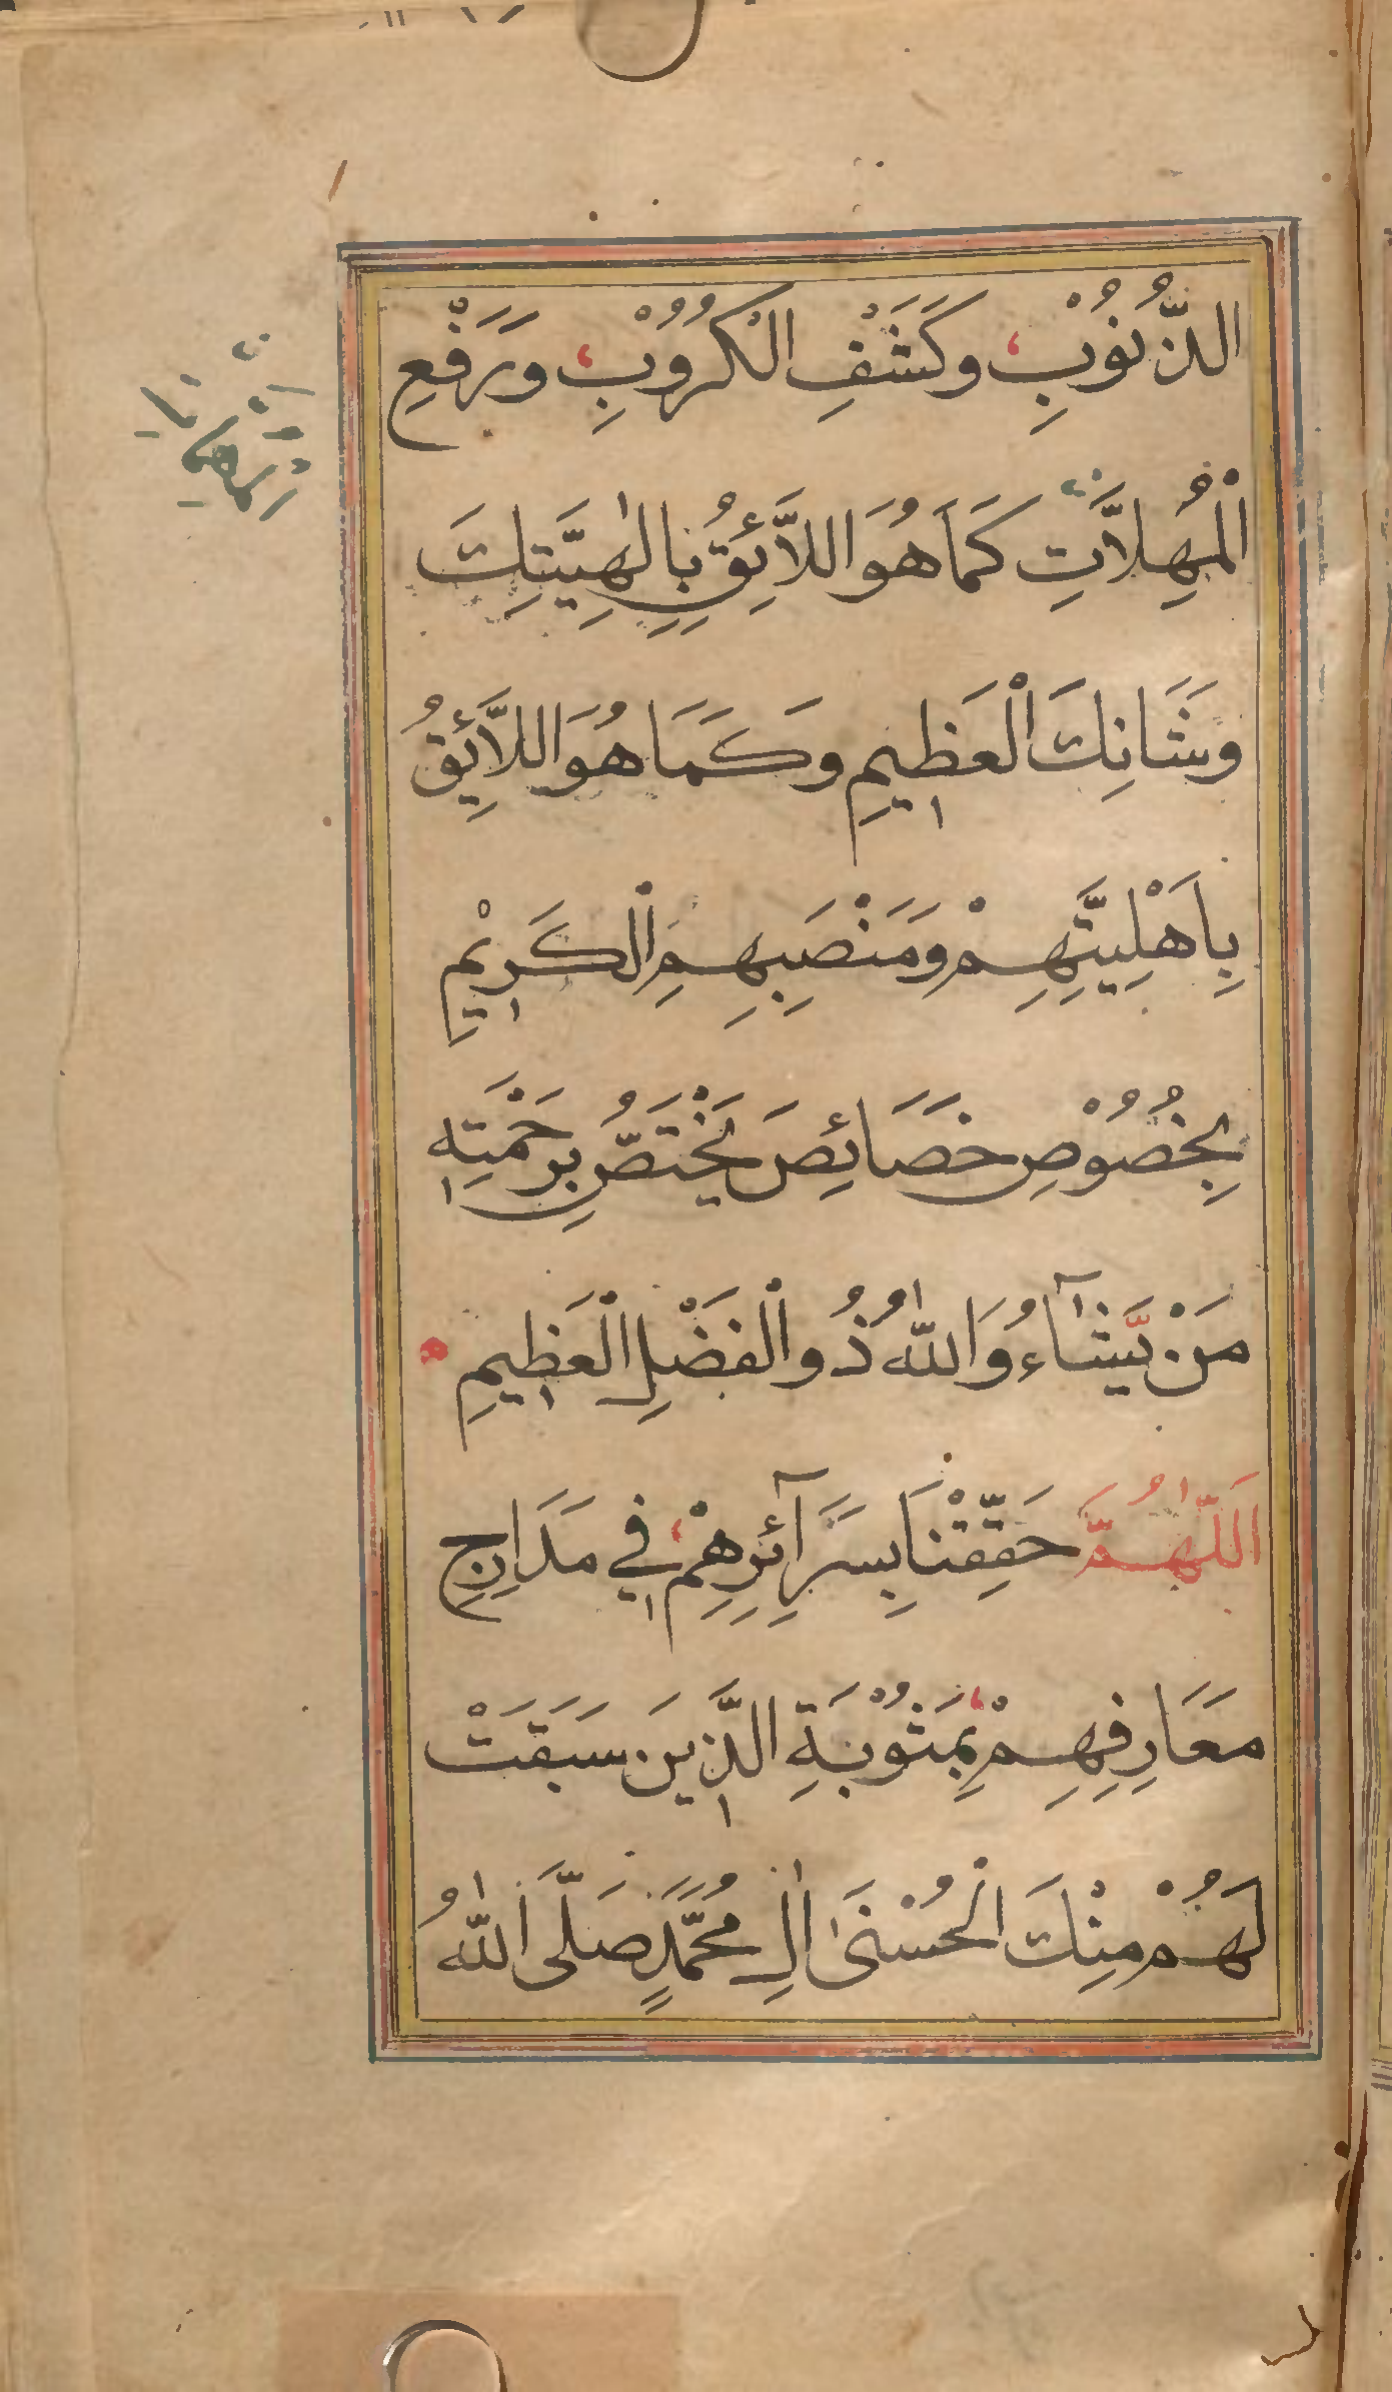 الذُّنُوْبِ وَكَشْفِ الْكُرُوْبِ وَرَفْعِ
الْمُهِلَّاتِ كَمَا هُوَ اللَّائِقُ بِاِلٰهِيَّتِكَ
وَشَانِكَ الْعَظِيمِ وَكَمَا هُوَ اللَّائِقُ
بِاَهْلِيَّتِهِمْ وَمَنْصَبِهِمِ الْكَرِيْمِ
بِخُصُوْصِ خَصَائِصَ يَخْتَصُّ بِرَحْمَتِهٖ
مَنْ يَّشَآءُ وَاللّٰهُ ذُو الْفَضْلِ الْعَظِيمِ
اَللّٰهُمَّ حَقِّقْنَا بِسَرَآئِرِهِمْ فِي مَدَارِجِ
مَعَارِفِهِمْ بِمَثُوْبَةِ الَّذِينَ سَبَقَتْ
لَهُمْ مِنْكَ الْحُسْنَىٰ اٰلِ مُحَمَّدٍ صَلَّى اللّٰهُ